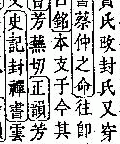 氏改封氏又穿
書蔡仲之命往即
銘本支子今其
芳蕪切正韻芳
史記封禪書雲